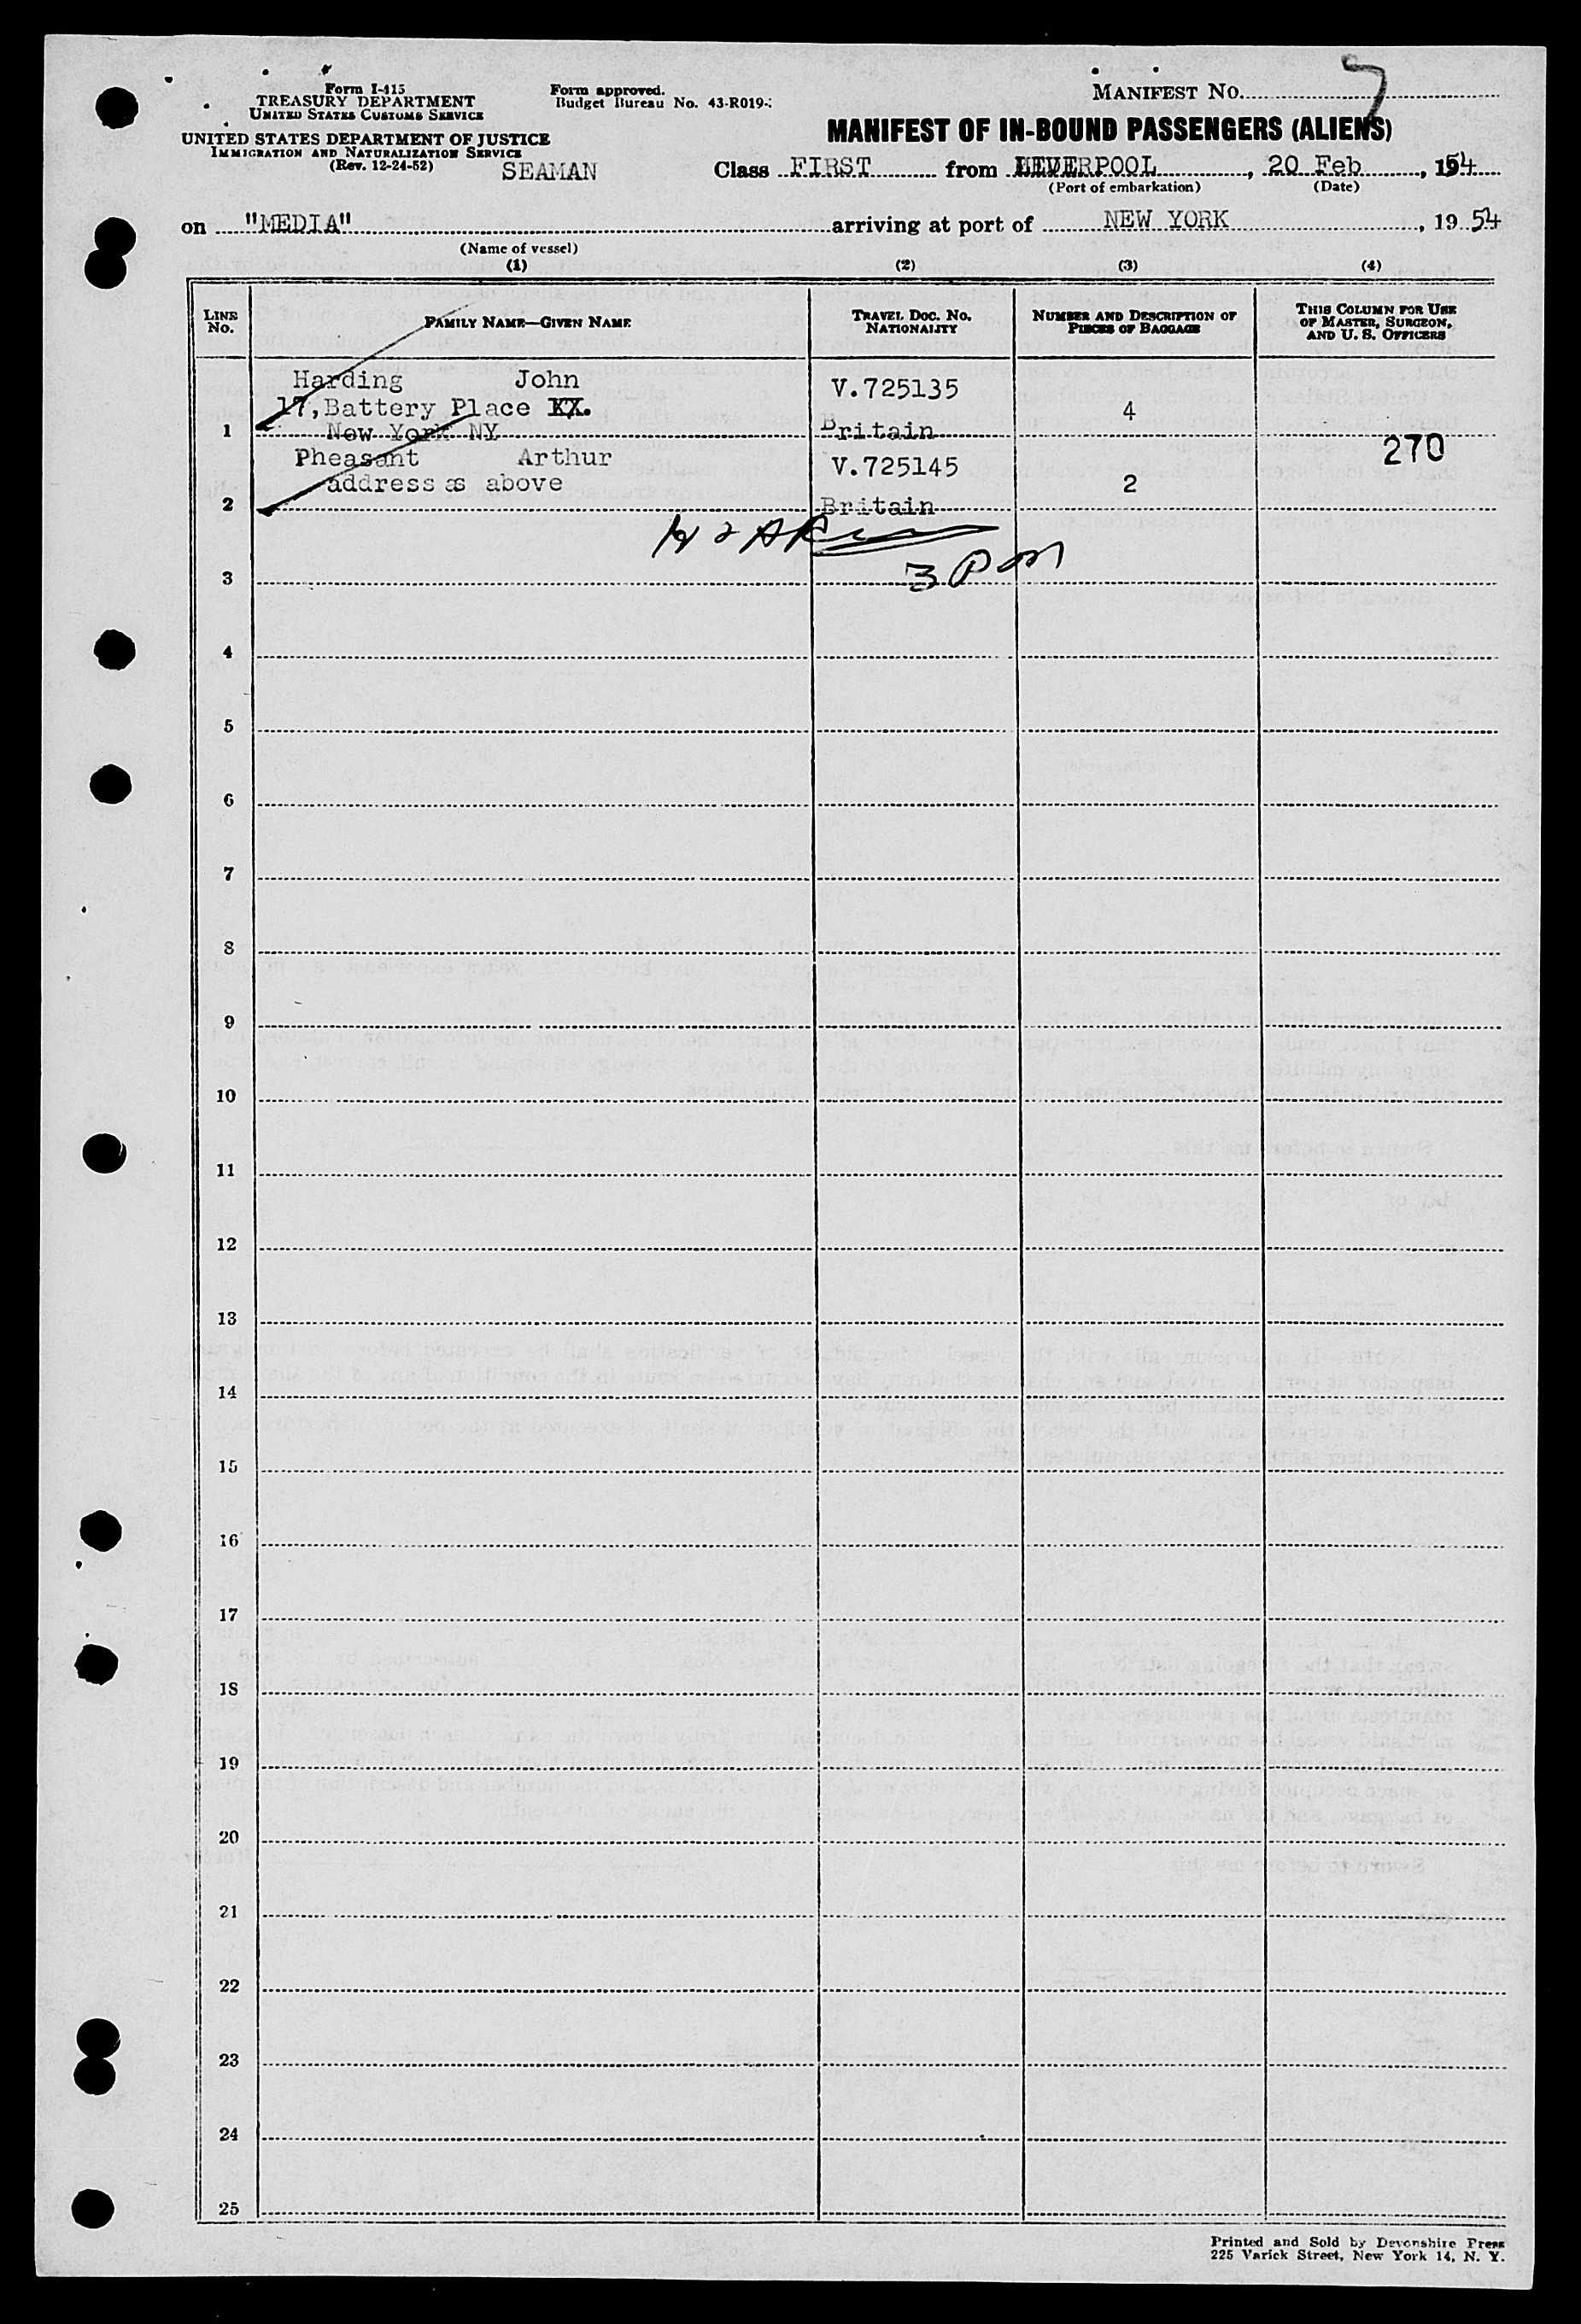 Form I-415
TREASURY DEPARTMENT
UNITED STATES CUSTOMS SERVICE
UNITED STATES DEPARTMENT OF JUSTICE
IMMIGRATION AND NATURALIZATION SERVICE
(Rev. 12-24-52)
SEAMAN
Form approved.
Budget Bureau No. 43-R019-
MANIFEST NO. 7
MANIFEST OF IN-BOUND PASSENGERS (ALIENS)
Class FIRST from LIVERPOOL, 20 Feb, 1954
(Port of embarkation) (Date)
on "MEDIA" arriving at port of NEW YORK, 1954
(Name of vessel)
(1) (2) (3) (4)
LINE No. FAMILY NAME—GIVEN NAME TRAVEL DOC. NO. NATIONALITY NUMBER AND DESCRIPTION OF PIECES OF BAGGAGE THIS COLUMN FOR USE OF MASTER, SURGEON, AND U. S. OFFICERS
Harding John V.725135
17, Battery Place XX. 4
1 New York NY Britain
Pheasant Arthur V.725145 270
address as above 2
2 Britain
3 PM
3
4
5
6
7
8
9
10
11
12
13
14
15
16
17
18
19
20
21
22
23
24
25
Printed and Sold by Devonshire Press
225 Varick Street, New York 14, N. Y.